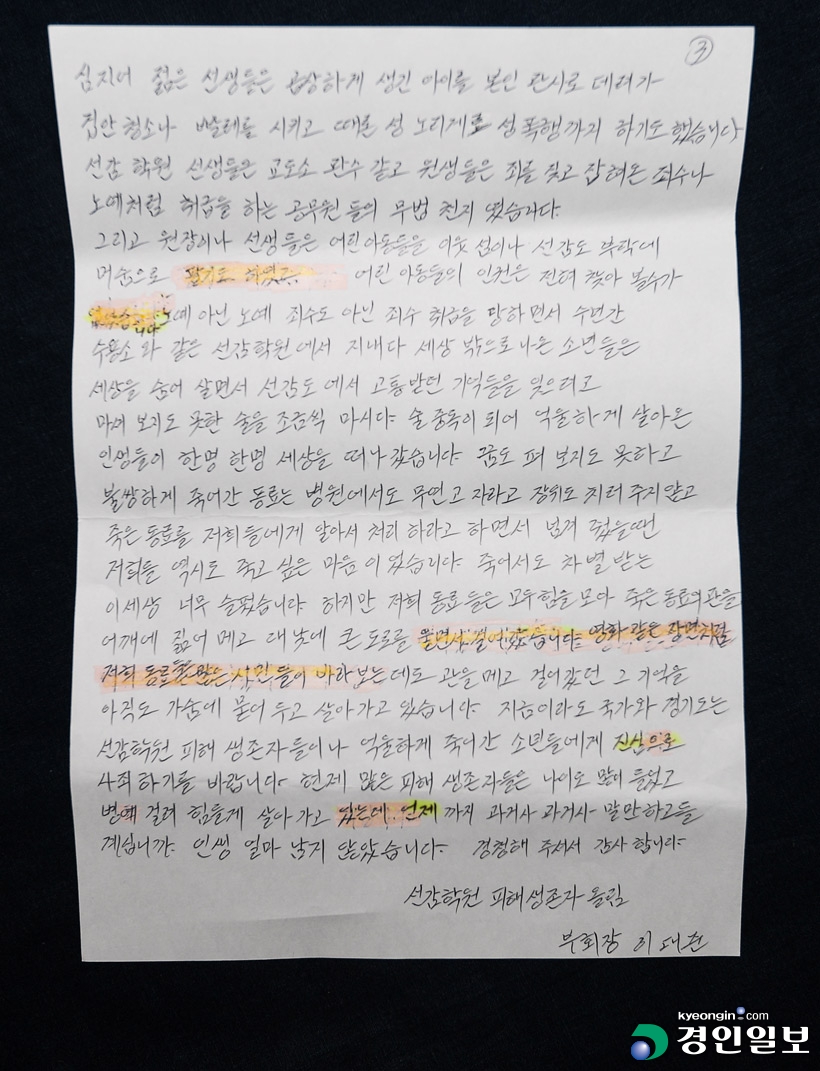 ③
심지어 젊은 선생들은 곱상하게 생긴 아이를 본인 관사로 데려가
집안 청소나 빨래를 시키고 때론 성 노리게로 성폭행까지 하기도 했습니다
선감 학원 선생들은 교도소 관수 같고 원생들은 죄를 짖고 잡혀온 죄수나
노예처럼 취급을 하는 공무원 들의 무법 천지 였습니다.
그리고 원장이나 선생들은 어린아동들을 이웃 섬이나 선감도 부락에
머슴으로 팔기도 하였고. 어린 아동들의 인권은 전혀 찾아 볼수가
없었습니다 노예 아닌 노예 죄수도 아닌 죄수 취급을 당하면서 수년간
수용소와 같은 선감학원에서 지내다 세상 밖으로 나온 소년들은
세상을 숨어 살면서 선감도에서 고통받던 기억들을 잊으려고
마셔 보지도 못한 술을 조금씩 마시다. 술 중독이 되어 억울하게 살아온
인생들이 한명 한명 세상을 떠나 갔습니다. 꿈도 펴 보지도 못하고
불쌍하게 죽어간 동료는 병원에서도 무연고 자라고 장위도 치러 주지 않고
죽은 동료를 저희들에게 알아서 처리 하라고 하면서 넘겨 줬을땐
저희들 역시도 죽고 싶은 마음 이었습니다. 죽어서도 차별 받는
이세상 너무 슬펐습니다. 하지만 저희 동료 들은 모두 힘을 모아 죽은 동료의 관을
어깨에 짊어 메고 대낮에 큰 도로를 울면서 걸어 갔습니다. 영화 같은 장면처럼
저희 동료들은 많은 시민들이 바라보는데도 관을 메고 걸어갔던 그 기억을
아직도 가슴에 묻어 두고 살아가고 있습니다. 지금이라도 국가와 경기도는
선감학원 피해 생존자 들이나 억울하게 죽어간 소년들에게 진심으로
사죄하기를 바랍니다. 현제 많은 피해 생존자들은 나이도 많이 들었고
병에 걸려 힘들게 살아 가고 있는데. 언제 까지 과거사 과거사 말만하고들
계십니까. 인생 얼마 남지 않았습니다. 경청해 주셔서 감사 합니다.
선감학원 피해생존자 올림
부회장 이대준
kyeongin.com
경인일보